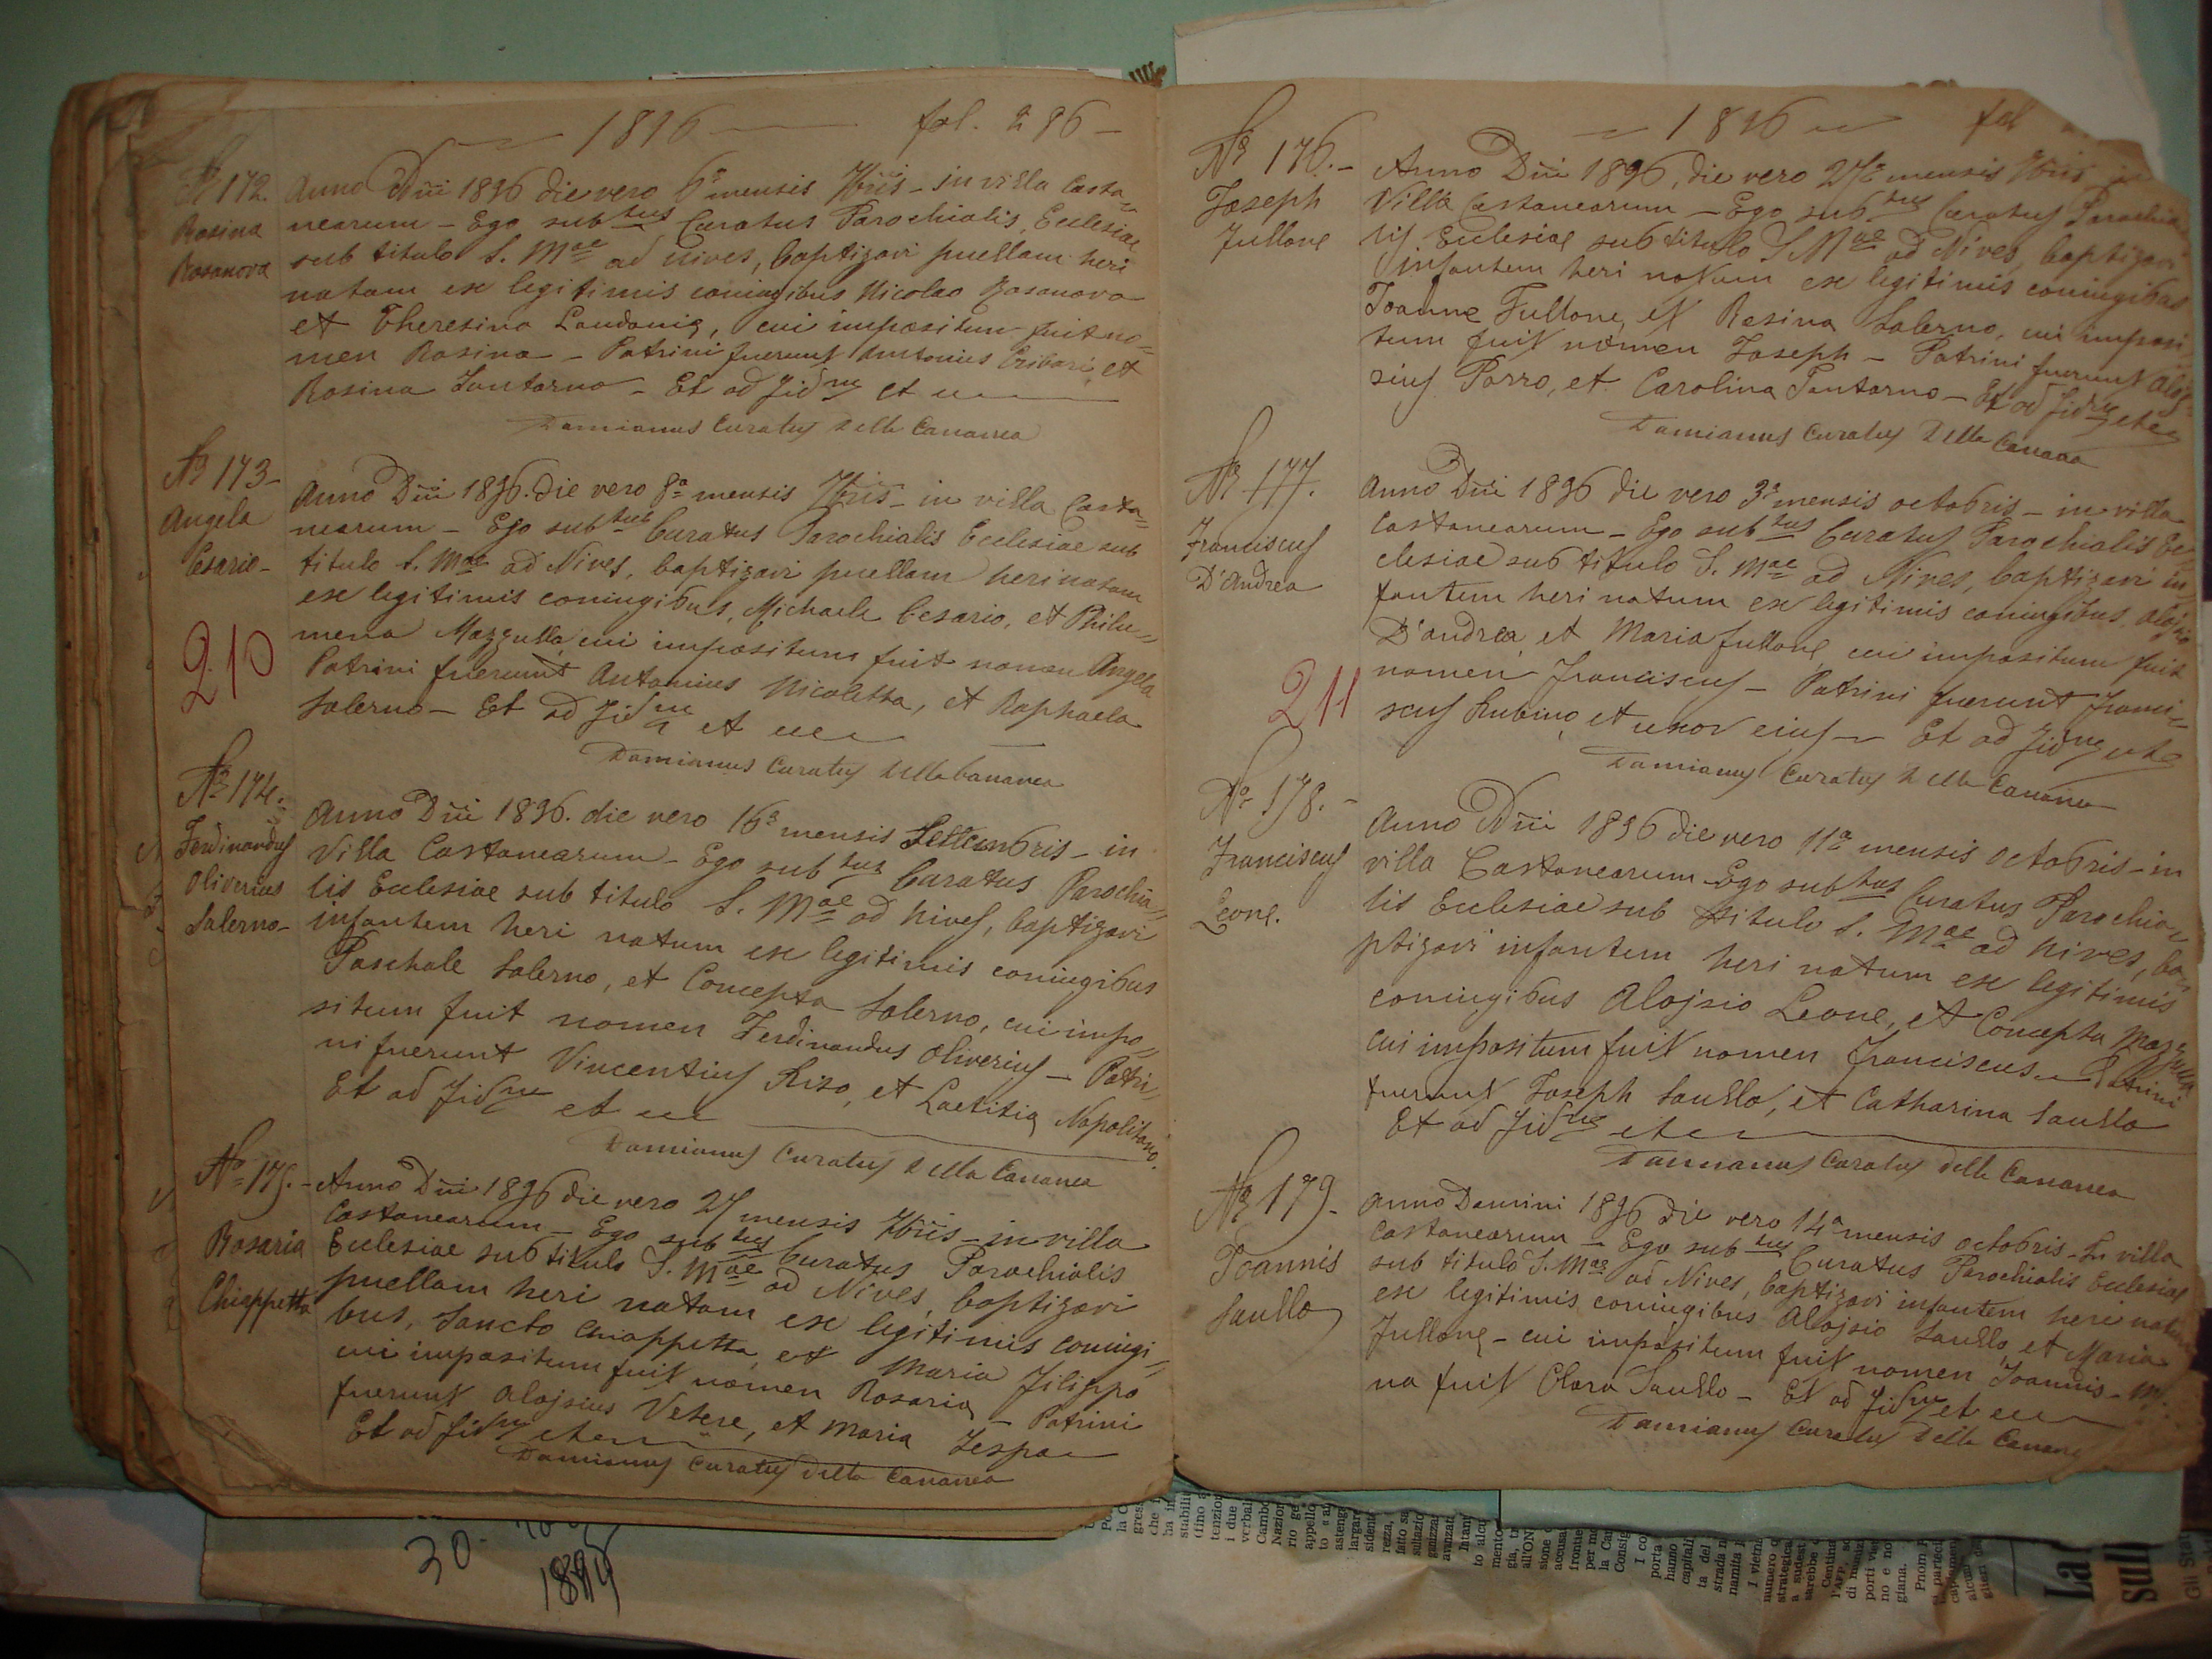 1896 fol. 296
Nº 172.
Rosina
Rosanova
Anno Dñi 1896 die vero 6ª mensis 7bris - in villa Casta=
nearum - Ego subtus Curatus Parochialis Ecclesiae
sub titulo S. Mae ad Nives, baptizavi puellam heri
natam ex legitimis coniugibus Nicolao Rosanova
et Theresina Laudonia, cui impositum fuit no=
men Rosina - Patrini fuerunt Antonius Cribari, et
Rosina Santorno - Et ad fid
Damianus Curatus Della Cananea
Nº 173-
Angela
Cesario-
210
Anno Dñi 1896. die vero 8ª mensis 7bris - in villa Casta=
nearum - Ego subtus Curatus Parochialis Ecclesiae sub
titulo S. Mae ad Nives, baptizavi puellam heri natam
ex legitimis coniugibus, Michaele Cesario, et Philu=
mena Mazzulla, cui impositum fuit nomen Angela
Patrini fuerunt Antonius Nicoletta, et Raphaela
Salerno - Et ad fid
Damianus Curatus Della Cananea
Nº 174.
Ferdinandus
Oliverius
Salerno-
Anno Dñi 1896. die vero 16ª mensis Settembris - in
Villa Castanearum - Ego subtus Curatus Parochia=
lis Ecclesiae sub titulo S. Mae ad Nives, baptizavi
infantem heri natum ex legitimis coniugibus
Paschale Salerno, et Concepta Salerno, cui impo=
situm fuit nomen Ferdinandus Oliverius - Patri=
ni fuerunt Vincentius Rizo, et Laetitia Napolitano.
Et ad fid
Damianus Curatus Della Cananea
Nº 175.-
Rosaria
Chiappetta
Anno Dñi 1896 die vero 27 mensis 7bris - in villa
Castanearum - Ego subtus Curatus Parochialis
Ecclesiae sub titulo S. Mae ad Nives, baptizavi
puellam heri natam ex legitimis coniugi=
bus, Sancto Chiappetta, et Maria Filippo
cui impositum fuit nomen Rosaria - Patrini
fuerunt Aloysius Vetere, et Maria
Et ad fid
Damianus Curatus Della Cananea
1896 fol
Nº 176.-
Joseph
Fullone
Anno Dñi 1896, die vero 27ª mensis 7bris
Villa Castanearum - Ego subtus Curatus Parochia
lis Ecclesiae sub titulo S. Mae ad Nives, baptizavi
infantem heri natum ex legitimis coniugibus
Joanne Fullone, et Rosina Salerno, cui imposi
tum fuit nomen Joseph - Patrini fuerunt Aloy=
sius Porro, et Carolina Santorno - Et ad fid
Damianus Curatus Della Cananea
Nº 177.
Franciscus
D'Andrea
211
Anno Dñi 1896 die vero 3ª mensis octobris - in villa
Castanearum - Ego subtus Curatus Parochialis Ec=
clesiae sub titulo S. Mae ad Nives, baptizavi in
fantem heri natum ex legitimis coniugibus, Aloysio
D'Andrea, et Maria Fullone, cui impositum fuit
nomen Franciscus - Patrini fuerunt Franci=
scus Rubino, et uxor eius - Et ad fid
Damianus Curatus Della Cananea
Nº 178.-
Franciscus
Leone.
Anno Dñi 1896 die vero 11ª mensis octobris - in
villa Castanearum - Ego subtus Curatus Parochia=
lis Ecclesiae sub titulo S. Mae ad Nives, ba=
ptizavi infantem heri natum ex legitimis
coniugibus Aloysio Leone, et Concepta Mazzulla
cui impositum fuit nomen Franciscus - Patrini
fuerunt Joseph Saullo, et Catharina Saullo
Et ad fid
Damianus Curatus Della Cananea
Nº 179-
Joannis
Saullo
Anno Domini 1896 die vero 14ª mensis octobris - In villa
Castanearum - Ego subtus Curatus Parochialis Ecclesiae
sub titulo S. Mae ad Nives, baptizavi infantem heri natum
ex legitimis coniugibus Aloysio Saullo, et Maria
Fullone - cui impositum fuit nomen Joannis -
na fuit Clara Saullo - Et ad fid
Damianus Curatus Della Cananea
30-
La
sull